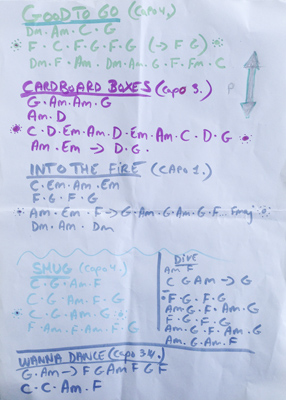 GOOD TO GO (Capo 4.)
Dm. Am. C. G
F. C. F. G. F. G (→ F G)
Dm. F. Am. Dm. Am. G. F. Fm. C
CARDBOARD BOXES (Capo 3.)
G. Am. Am. G
Am. D
C. D. Em. Am. D. Em. Am. C. D. G
Am. Em → D. G.
INTO THE FIRE (CAPO 1.)
C. Em. Am. Em
F. G. F. G
Am. Em. F → G. Am. G. Am. G. F...
Dm. Am. Dm
SMUG (Capo 4.)
C. G. Am. F
C. G. Am. F. G
C. G. Am. G.
F. Am. F. Am. F. G
Dive
Am F
C G Am → G
F. G. F. G
Am. G. F. Am. G
F. G. F. G
Am. G. F. Am. G
Am. G. Am. F
WANNA DANCE (Capo
G. Am → F G Am F G F
C. C. Am. F